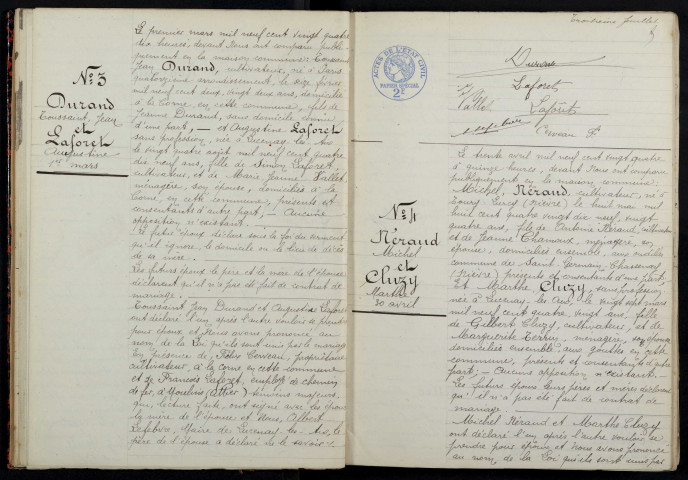 N° 3
Durand
Toussaint, Jean
et
Laforêt
Augustine
1er mars
Le premier mars mil neuf cent vingt quatre
dix heures, devant Nous ont comparu publi-
quement en la maison commune: Toussaint
Jean Durand, cultivateur, né à Paris
quatorzième arrondissement, le seize février
mil neuf cent deux, vingt deux ans, domicilié
à la Corne, en cette commune, fils de
Jeanne Durand, sans domicile connu
d'une part, — et Augustine Laforêt
sans profession, née à Lucenay les Aix
le vingt quatre août mil neuf cent quatre
dix neuf ans, fille de Simon Laforêt,
cultivateur, et de Marie Jeanne Vallet
ménagère, son épouse, domiciliés à la
Corne en cette commune, présents et
consentants d'autre part; — Aucune
opposition n'existant.
Le futur époux déclare sous la foi du serment
qu'il ignore le domicile ou le lieu de décès
de sa mère.
Les futurs époux le père et la mère de l'épouse
déclarent qu'il n'a pas été fait de contrat de
mariage.
Toussaint Jean Durand et Augustine Laforêt
ont déclaré l'un après l'autre vouloir se prendre
pour époux et Nous avons prononcé, au
nom de la Loi qu'ils sont unis par le mariage
En présence de Cerveau, propriétaire
cultivateur, à la Corne en cette commune
et de François Laforêt, employé de chemin
de fer, à Moulins (Allier) témoins majeurs,
qui, lecture faite, ont signé avec les époux
la mère de l'épouse et Nous, Albert
Lefebvre, Maire de Lucenay les Aix, le
père de l'épouse a déclaré ne le savoir.
feuillet
5
ACTES DE L'ÉTAT CIVIL
PAPIER SPÉCIAL
2F
Durand
Laforêt
Vallet
Laforêt
Cerveau
N° 4
Nérand
Michel
et
Cluzy
Marthe
30 avril
Le trente avril mil neuf cent vingt quatre
à quinze heures, devant Nous ont comparu
publiquement en la maison commune:
Michel, Nérand cultivateur, né à
Lucy (Nièvre) le huit mai mil
huit cent quatre vingt dix neuf, vingt
quatre ans, fils de Antoine Nérand, cultivateur
et de Jeanne Chamoux, ménagère, son
épouse, domiciliés ensemble,
commune de Saint Germain Chassenay
(Nièvre) présents et consentants d'une part,
Et Marthe Cluzy, sans profession,
née à Lucenay les Aix, le vingt sept mars
mil neuf cent quatre, vingt ans, fille
de Gilbert Cluzy, cultivateur, et de
Marguerite Terrier, ménagère, son épouse
domiciliés ensemble aux Gouttes en cette
commune, présents et consentants d'autre
part; — Aucune opposition n'existant.
Les futurs époux leurs pères et mères déclarent
qu'il n'a pas été fait de contrat de
mariage.
Michel Nérand et Marthe Cluzy
ont déclaré l'un après l'autre vouloir se
prendre pour époux et Nous avons prononcé
au nom de la Loi qu'ils sont unis par